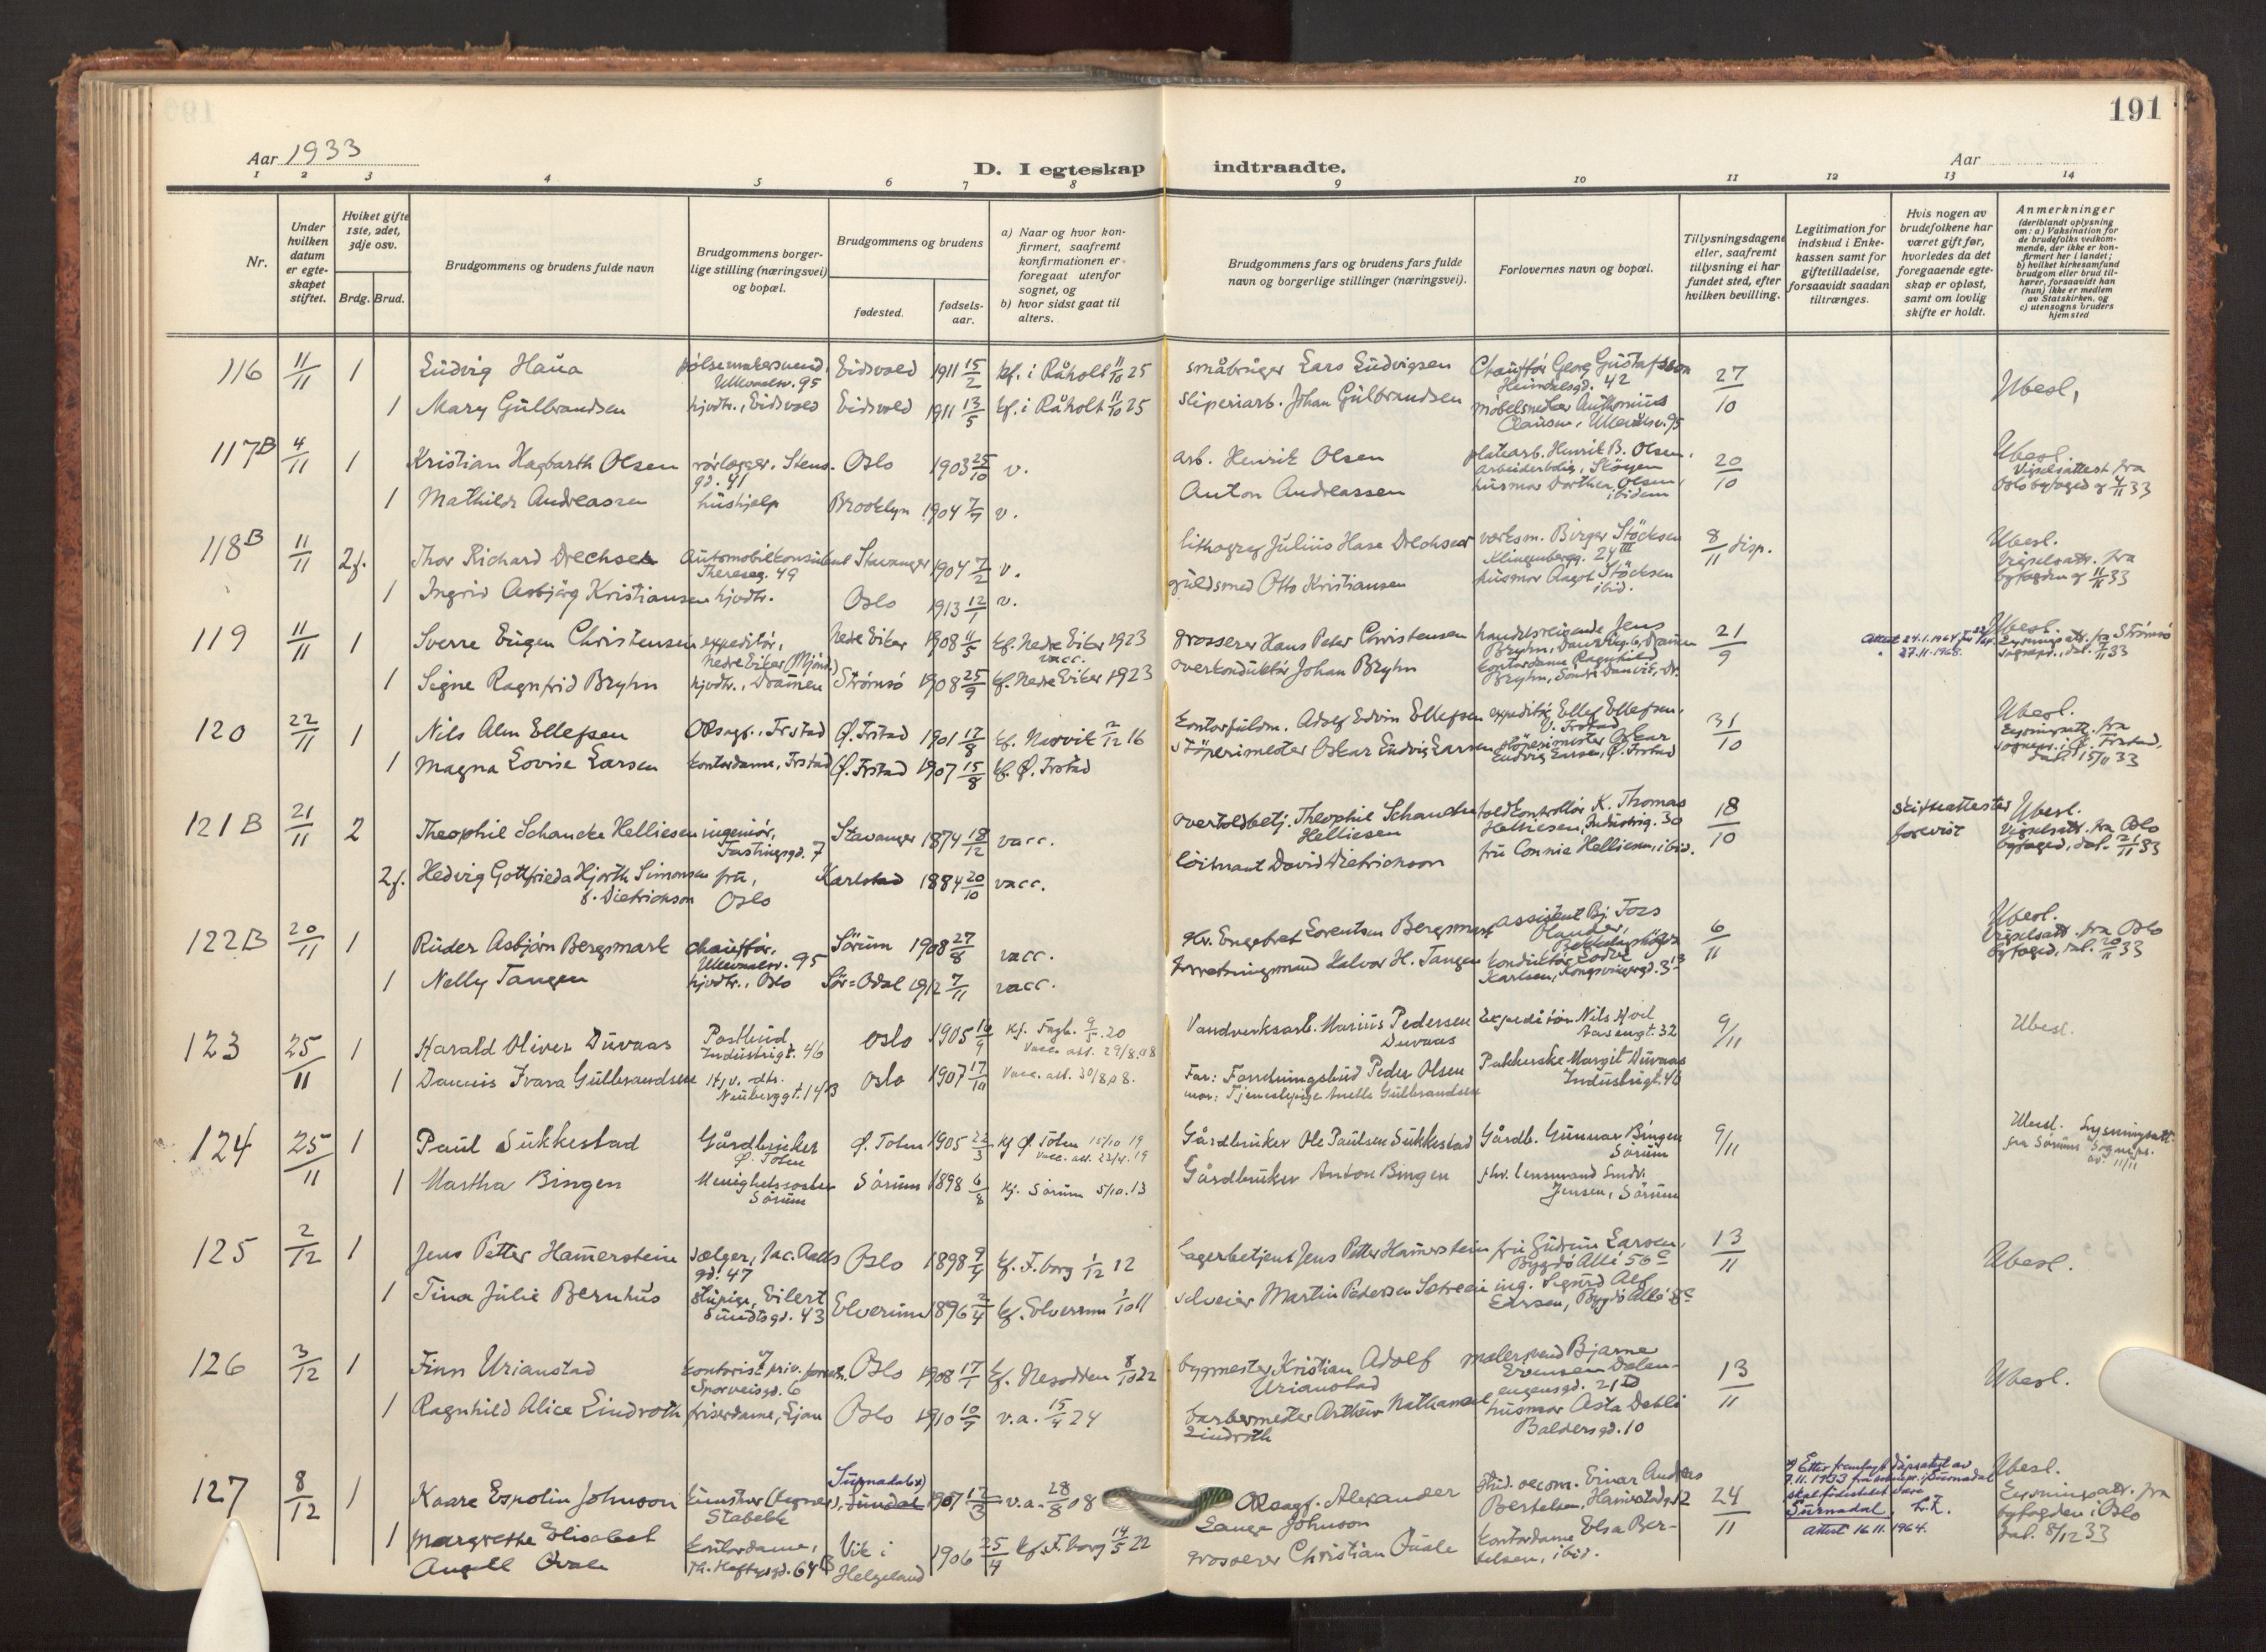 191
Aar 1933
D. I egteskap indtraadte.
Aar
1 2 3 4 5 6 7 8 9 10 11 12 13 14
Nr.
Under hvilken datum er egte-skapet stiftet.
Hviket gifte 1ste, 2det, 3dje osv.
Brdg. Brud.
Brudgommens og brudens fulde navn
Brudgommens borger-lige stilling (næringsvei) og bopæl.
Brudgommens og brudens
fødested.
fødsels-aar.
a) Naar og hvor kon-firmert, saafremt konfirmationen er foregaat utenfor sognet, og
b) hvor sidst gaat til alters.
Brudgommens fars og brudens fars fulde navn og borgerlige stillinger (næringsvei).
Forlovernes navn og bopæl.
Tillysningsdagene eller, saafremt tillysning ei har fundet sted, efter hvilken bevilling.
Legitimation for indskud i Enke-kassen samt for giftetilladelse, forsaavidt saadan tiltrænges.
Hvis nogen av brudefolkene har været gift før, hvorledes da det foregaaende egte-skap er opløst, samt om lovlig skifte er holdt.
Anmerkninger (deriblandt oplysning om: a) Vaksination for de brudefolks vedkom-mende, der ikke er kon-firmert her i landet; b) hvilket kirkesamfund brudgom eller brud til-hører, forsaavidt han (hun) ikke er medlem av Statskirken, og c) utensogns bruders hjemsted
116 11/11 1 Ludvig Haua pølsemakersvend, Ullevaalsv. 95 Eidsvold 1911 15/2 kf. i Råholt 11/10 25 småbruger Lars Ludvigsen Chauffør Georg Gustafsson Heimdalsgd. 42 27/10 Ubesl.
1 Mary Gulbrandsen hjvdtr., Eidsvold Eidsvold 1911 13/5 kf. i Råholt 11/10 25 sliperiarb. Johan Gulbrandsen møbelsnedker Anthonius Clausen, Ullevålsv. 95
117B 4/11 1 Kristian Hagbarth Olsen rørlægger, Stensgd. 41 Oslo 1903 25/10 v. arb. Henrik Olsen platearb. Henrik B. Olsen, arbeiderbolig, Skøyen 20/10 Ubesl. Vigselsattest fra Oslo byfoged af 4/11 33
1 Mathilde Andreassen hushjelp Brooklyn 1904 v. Anton Andreassen husmor Dorthea Olsen, ibidem
118B 11/11 2f. Thor Richard Drechsler Automobilkonsulent Theresesg. 49 Stavanger 1904 7/2 v. lithograf Julius Hase Drechsler verksm. Birger Stöcksen Klingenbergg. 24 III 8/11 disp. Ubesl. Vigselsatt. fra byfogden af 11/11 33
1 Ingrid Asbjørg Kristiansen hjvdtr. Oslo 1913 12/1 v. guldsmed Otto Kristiansen husmor Aagot Stöcksen ibid.
119 11/11 1 Sverre Eugen Christensen expeditør, Nedre Eiker (Mjønd.) Nedre Eiker 1908 11/5 kf. Nedre Eiker 1923 vacc. grosserer Hans Peter Christensen handelsreisende Jens Bryhn, Drammen 21/9 Attest 24.1.1964 27.11.1965 Ubesl. Lysningsatt. fra Strømsø sognepr., dat. 7/11 33
1 Signe Ragnfrid Bryhn hjvdtr., Drammen Strømsø 1908 25/9 kf. Nedre Eiker 1923 overkonduktør Johan Bryhn kontordame Ragnhild Bryhn, Søndre Danvik, Dr.
120 22/11 1 Nils Alm Ellefsen ORsagf., Frstad Ø. Frstad 1901 17/8 kf. Narvik 2/12 16 kontorfuldm. Adolf Edvin Ellefsen expeditør Ellef Ellefsen, V. Frstad 31/10 Ubesl. Lysningsatt. fra sognepr. i Ø. Frstad, dat. 15/11 33
1 Magna Lovise Larsen kontordame, Frstad Ø. Frstad 1907 15/8 kf. Ø. Frstad støperimester Oskar Ludvig Larsen støperimester Oskar Ludvig Larsen, Ø. Frstad
121B 21/11 2 Theophil Schancke Helliesen ingeniør, Fastingsgd. 7 Stavanger 1874 18/12 vacc. overtoldbetj. Theophil Schancke Helliesen toldkontrollør K. Thomas Helliesen, Industrig. 30 18/10 skifteattester forevist Ubesl. Vigselsatt. fra Oslo byfoged, dat. 21/11 33
2f. Hedvig Gottfrieda Hjorth Simonsen f. Dietrichson fru, Oslo Karlstad 1884 20/10 vacc. löitnant David Dietrichson fru Connie Helliesen, ibid.
122B 20/11 1 Ruder Asbjørn Bergsmark chauffør, Ullevaalsv. 95 Sörum 1908 27/8 vacc. gbr. Engebret Lorentsen Bergsmark assistent Bj. Foss Olander, Bekkelagshøgda 6/11 Ubesl. Vigselsatt. fra Oslo byfoged, dat. 20/11 33
1 Nelly Tangen hjvdtr., Oslo Sör-Odal 1912 7/11 vacc. forretningsmand Halvor H. Tangen konduktør Lodve Karlsen, Kongsvingergd. 3
123 25/11 1 Harald Oliver Duvaas Postbud, Industrigt. 46 Oslo 1905 kf. Fagb. 9/5.20 Vacc. att. 29/8.08 Vandverksarb. Marius Pedersen Duvaas Expeditør Nils Hoel Aasengt. 32 9/11 Ubesl.
1 Dagnis Ivara Gulbrandsen Hjv. dtr. Neuberggt. 14B Oslo 1907 17/10 Vacc. att. 30/8.08. Far: Forretningsbud Peder Olsen mor: Tjenestepige Anette Gulbrandsen Pakkerske Margit Duvaas Industrigt. 46
124 25/11 1 Paul Sukkestad Gårdbruker Ø. Toten Ø. Toten 1905 kf Ø. Toten 15/10 19 Vacc. att. 23/4.19 Gårdbruker Ole Paulsen Sukkestad Gårdb. Gunnar Bingen Sörum 9/11 Ubesl. Lysningsatt. fra Sörums Sognepr. av 11/11
1 Martha Bingen Menighetssøster Sörum Sörum 1898 6/8 kf. Sörum 5/10.13 Gårdbruker Anton Bingen fhv. lensmand Jensen, Sörum
125 2/12 1 Jens Petter Hamerstein sælger, Jac. Aallsgd. 47 Oslo 1898 9/4 kf. F.borg 1/12 12 lagerbetjent Jens Petter Hamerstein fru Gudrun Larsen, Bygdö Allé 50 c 13/11 Ubesl.
1 Tina Julie Bernhus stuepige, Eilert Sundtsgd. 43 Elverum 1896 2/4 kf. Elverum 1/10 11 selveier Martin Pedersen ing. Sigurd Alf Larsen, Bygdö Allé
126 3/12 1 Finn Urianstad kontorist v/ priv. Sporveisgd. 6 Oslo 1908 17/1 kf. Nesodden 8/10 22 bygmester Kristian Adolf Urianstad malersvend Bjarne Evensen Dalenengensgd. 21 D 13/11 Ubesl.
1 Ragnhild Alice Lindroth friserdame, Ljan Oslo 1910 10/7 v.a. 15/4 24 barbermester Arthur Nathanael Lindroth husmor Asta Dahl Baldersgd. 10
127 8/12 1 Kaare Espolin Johnson kunstner (tegner), Stabekk Surnadal x) Sundal 1907 17/3 v.a. 28/8 08 ORsagf. Alexander Lange Johnson stud. oecon. Einar Andreas Bertelsen, Hamerstadg. 12 24/11 x) Etter fremlagt dåpsattest av 7.11.1933 fra sognepr. i Surnadal skal fødestedet være Surnadal. L.Z. Attest 16.11.1964. Ubesl. Lysningsatt. fra byfogden i Oslo dat. 8/12 33
1 Margrethe Elisabeth Angell Qvale kontordame, Th. Heftyesgd. 64 B Vik i Helgeland 1906 25/4 kf. F.borg 14/5 22 grosserer Christian Qvale kontordame Elsa Bertelsen, ibid.